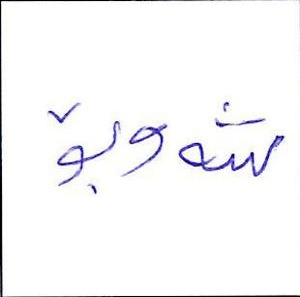 شەوبۆ